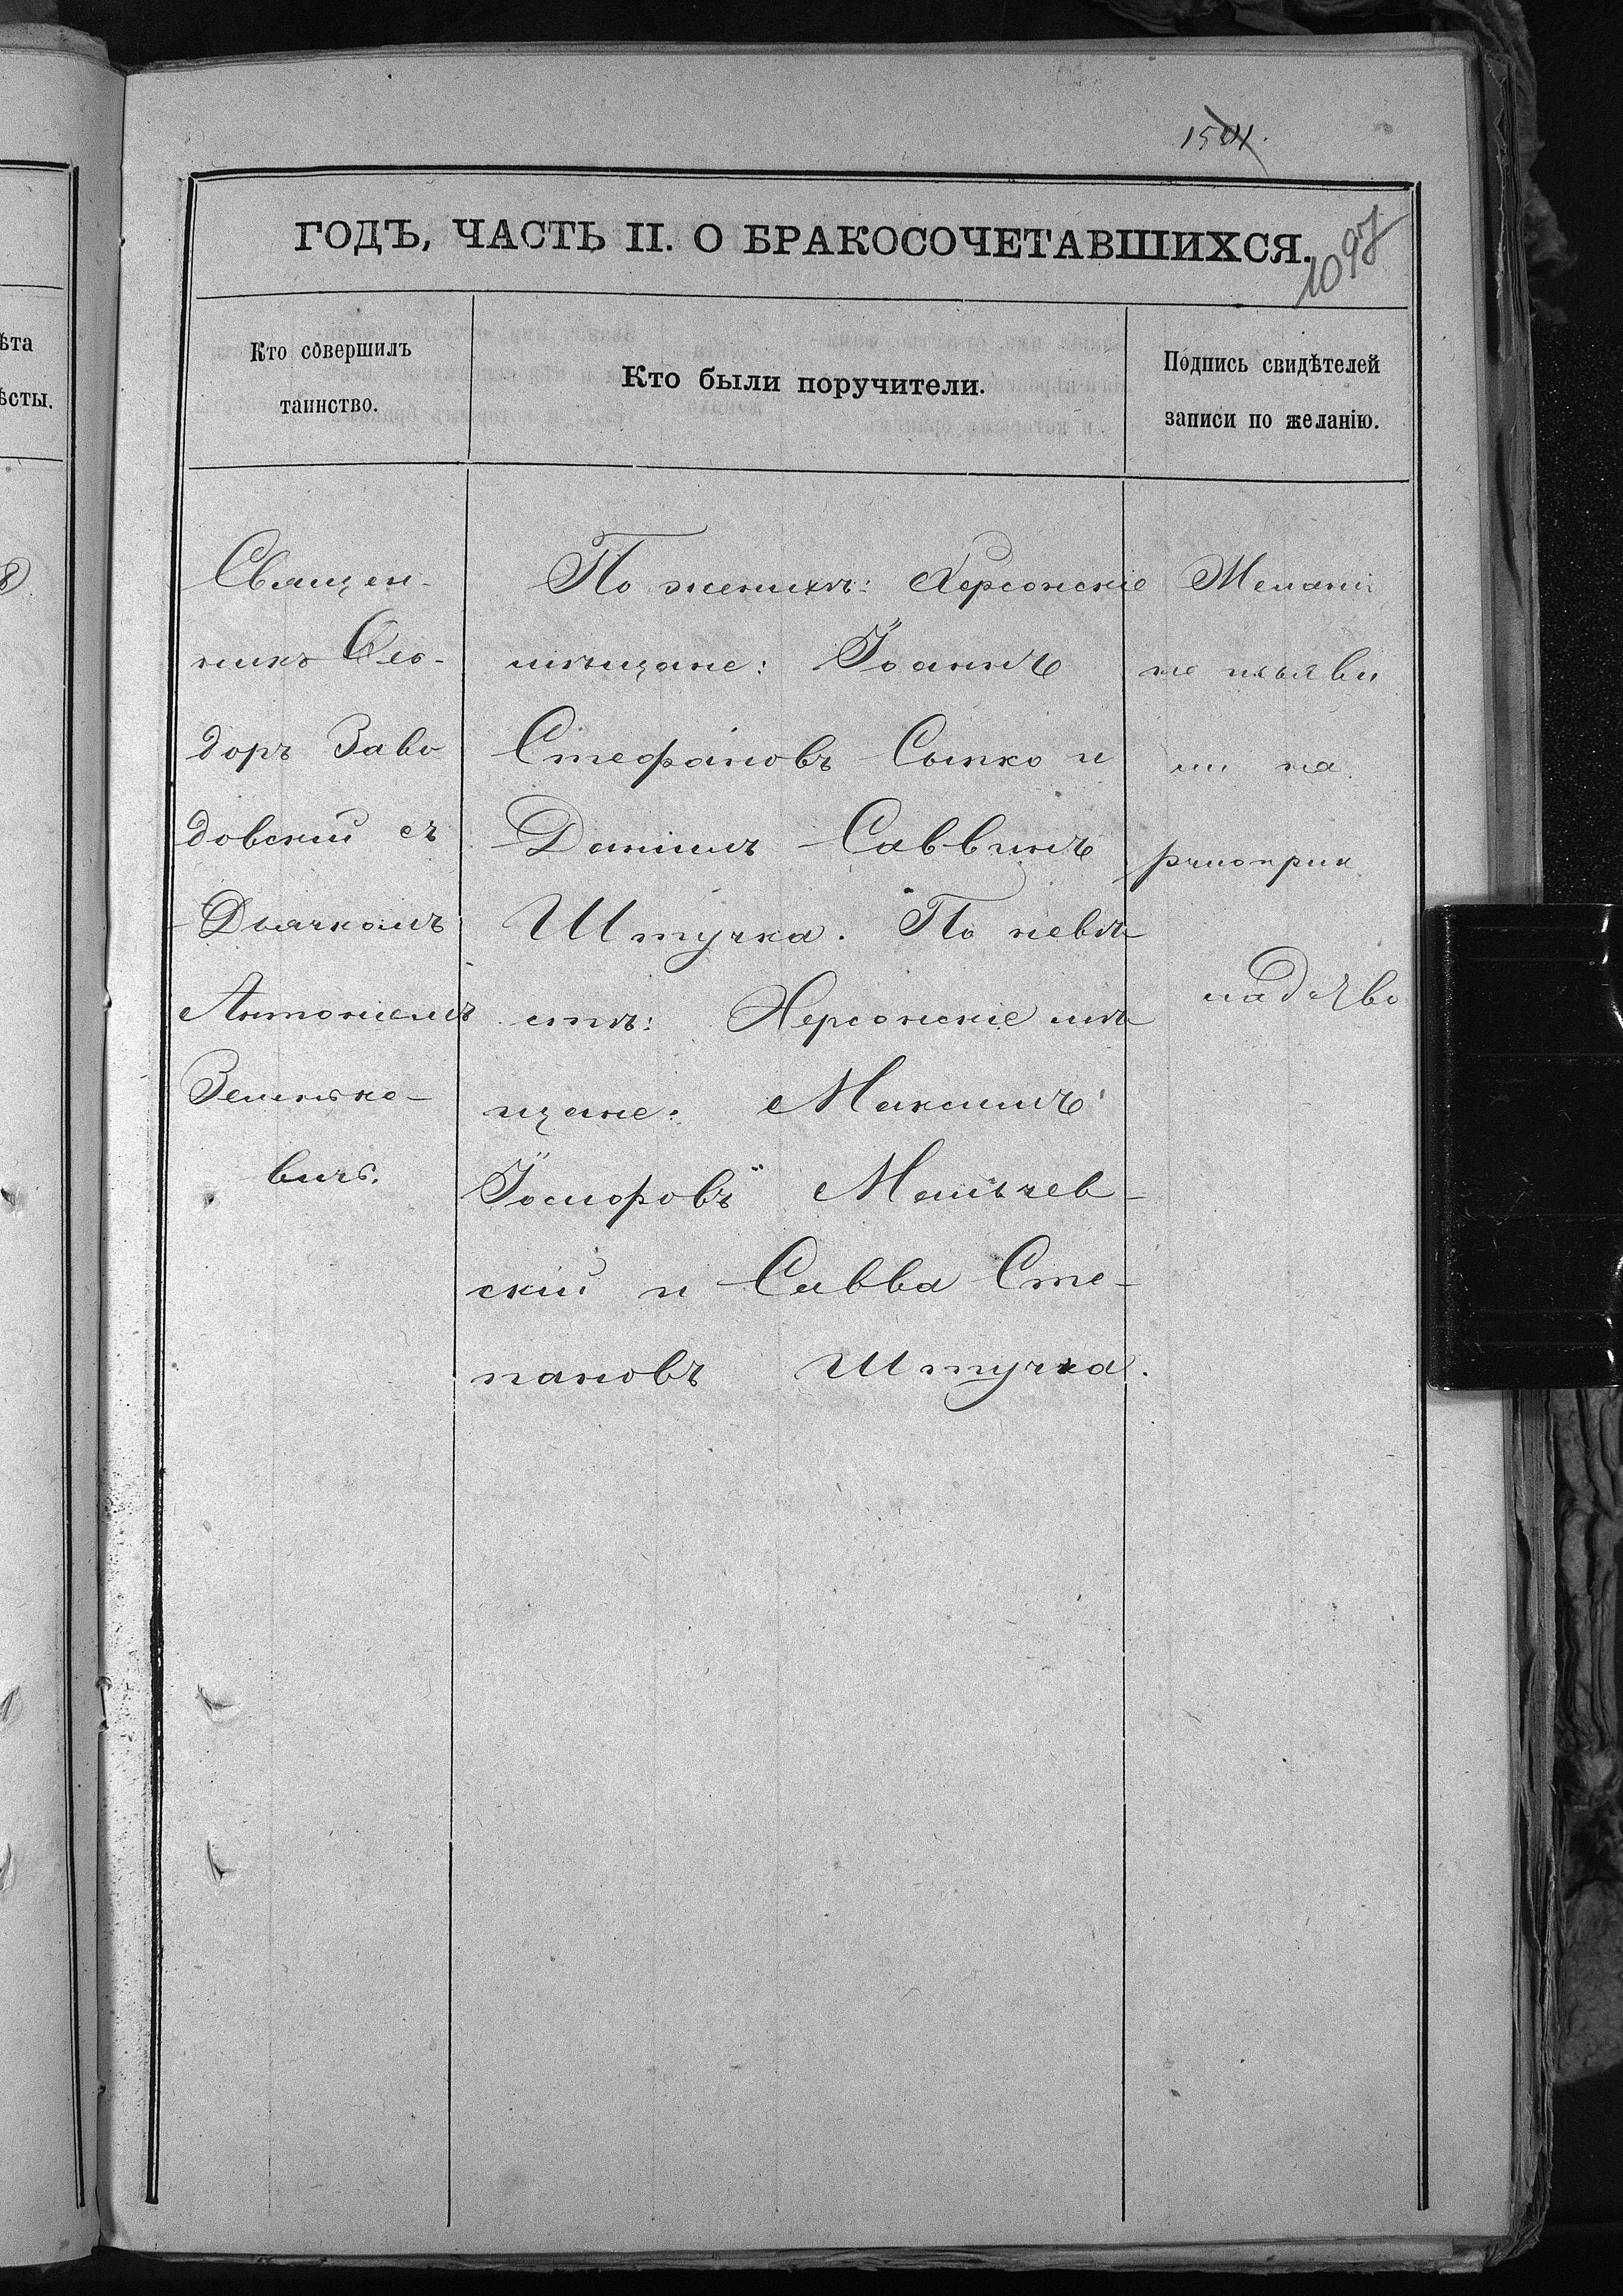 1501.
ГОДЪ, ЧАСТЬ II. О БРАКОСОЧЕТАВШИХСЯ.
1097
ѣта
ѣсты.
Кто совершилъ
таинство.
Кто были поручители.
Подпись свидѣтелей
записи по желанію.
Священ-
никъ Ѳео-
доръ Заво
довскій съ
Дьячкомъ
Антоніемъ
Зенько-
вичъ.
По женихѣ: Херсонскіе
мѣщане: Іоаннъ
Стефановъ Сытко и
Даніилъ Саввинъ
Штучка. По невѣ
стѣ: Херсонскіе мѣ
щане: Максимъ
Іосифовъ Мальчев-
скій и Савва Сте-
пановъ Штучка.
не изъяви
ли на